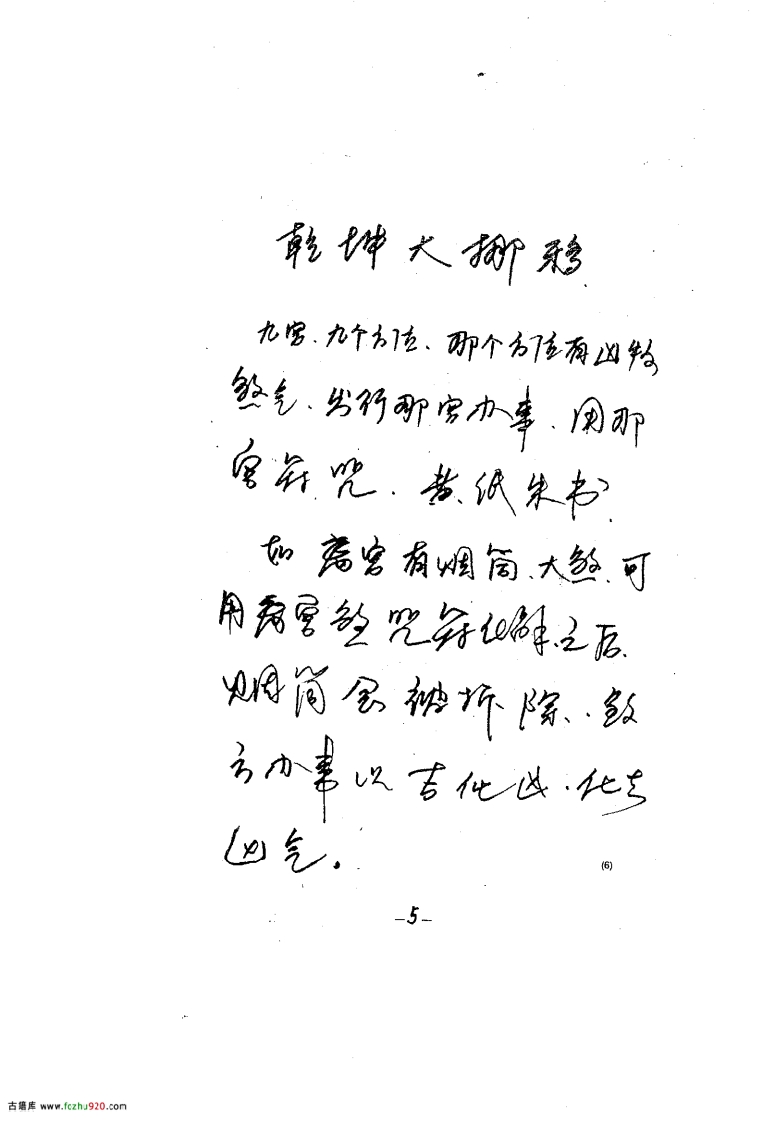 乾坤大挪移
九宫、九个方位、那个方位有凶物
煞气、出行那宫办事、用那
宫符咒、黄纸朱书
如离宫有烟筒、大煞、可
用离宫煞咒符化解、之后、
烟筒会被拆除、煞
方办事以吉化凶、化去
凶气。
(6)
–5–
古籍库 www.fozhu920.com